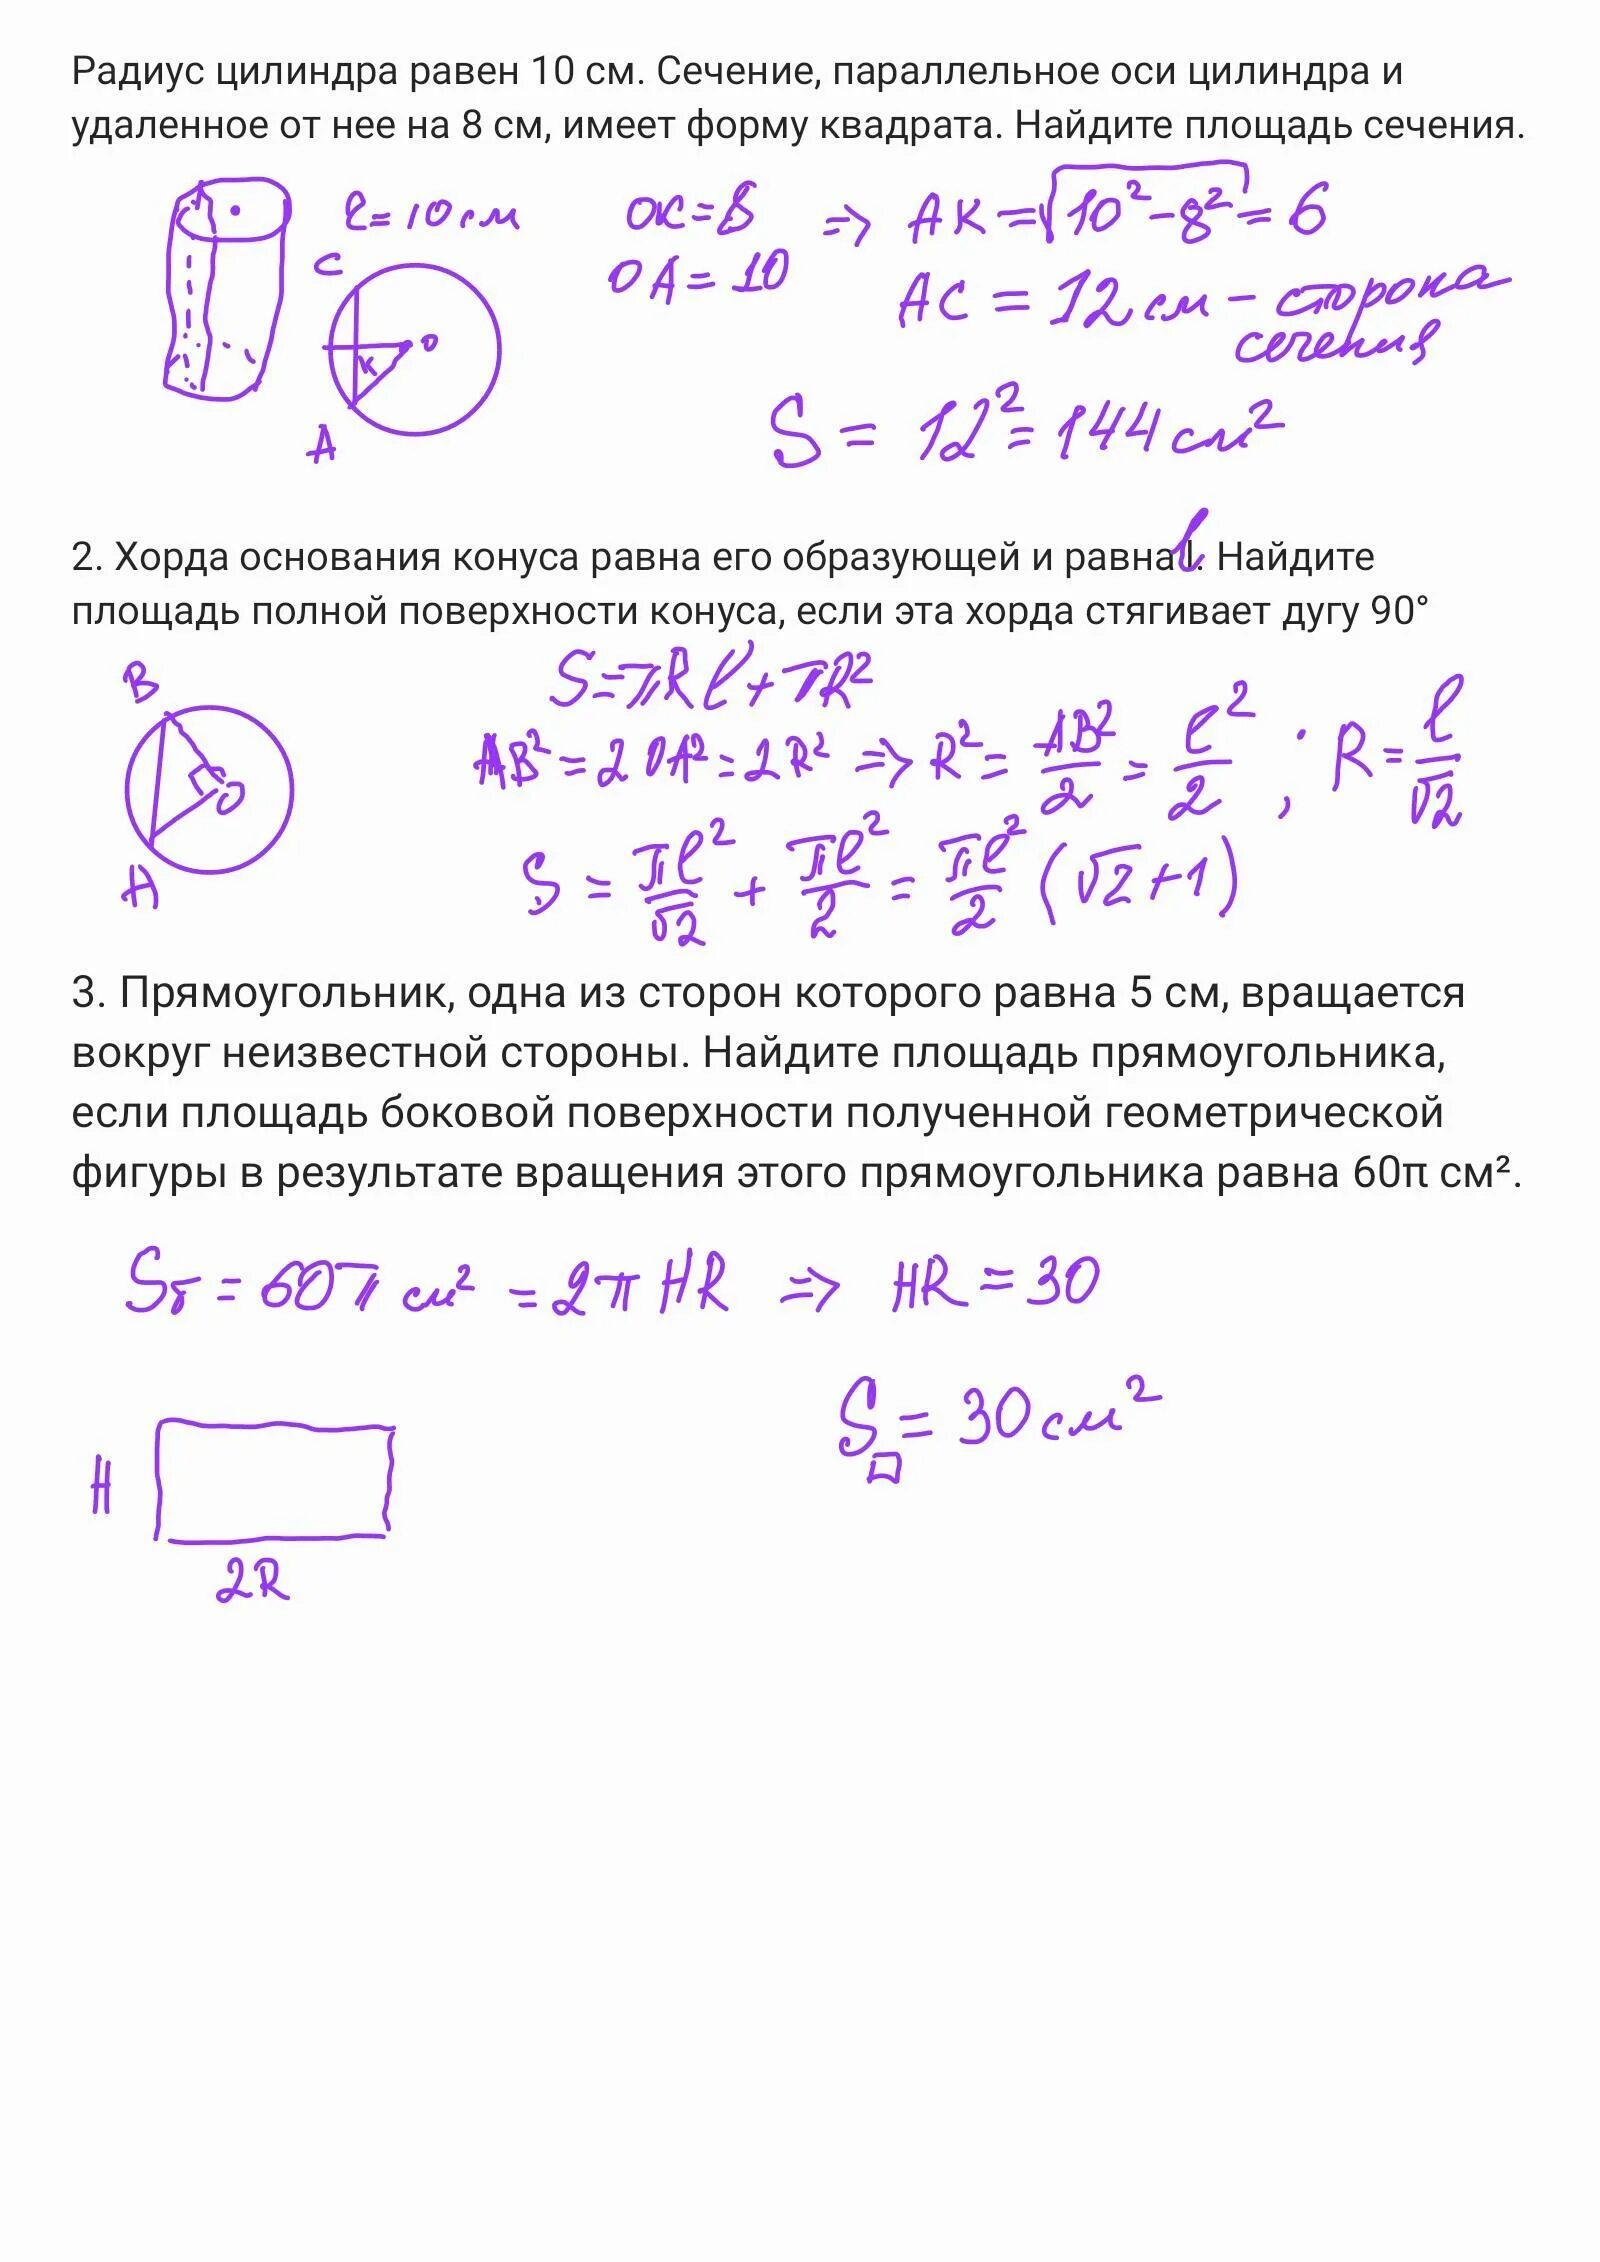 Радиус цилиндра равен 10 см. Сечение, параллельное оси цилиндра и
удаленное от нее на 8 см, имеет форму квадрата. Найдите площадь сечения.
r=10 см
OK=8
OA=10
=> AK=√10²-8²=6
AC=12 см - сторона
сечения
S=12²=144 см²
C
O
K
A
2. Хорда основания конуса равна его образующей и равна l. Найдите
площадь полной поверхности конуса, если эта хорда стягивает дугу 90°
B
O
A
S=πRl+πR²
AB²=2OA²=2R² => R²=AB²/2=l²/2; R=l/√2
S=πl²/√2+πl²/2=πl²/2(√2+1)
3. Прямоугольник, одна из сторон которого равна 5 см, вращается
вокруг неизвестной стороны. Найдите площадь прямоугольника,
если площадь боковой поверхности полученной геометрической
фигуры в результате вращения этого прямоугольника равна 60π см².
Sб=60π см²=2πHR => HR=30
S□=30 см²
H
2R